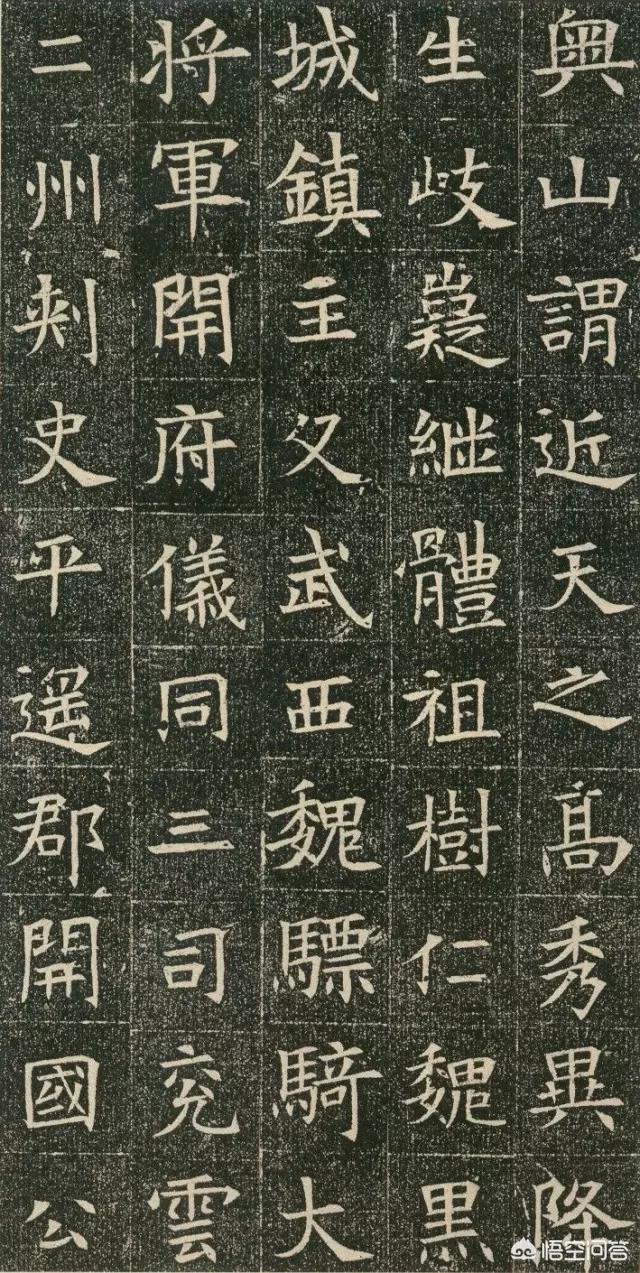 奧山謂近天之髙秀異降
生岐嶷継體祖樹仁魏黑
城鎮主父武西魏驃騎大
将軍開府儀同三司兖雲
二州刾史平遥郡開國公
悟空问答